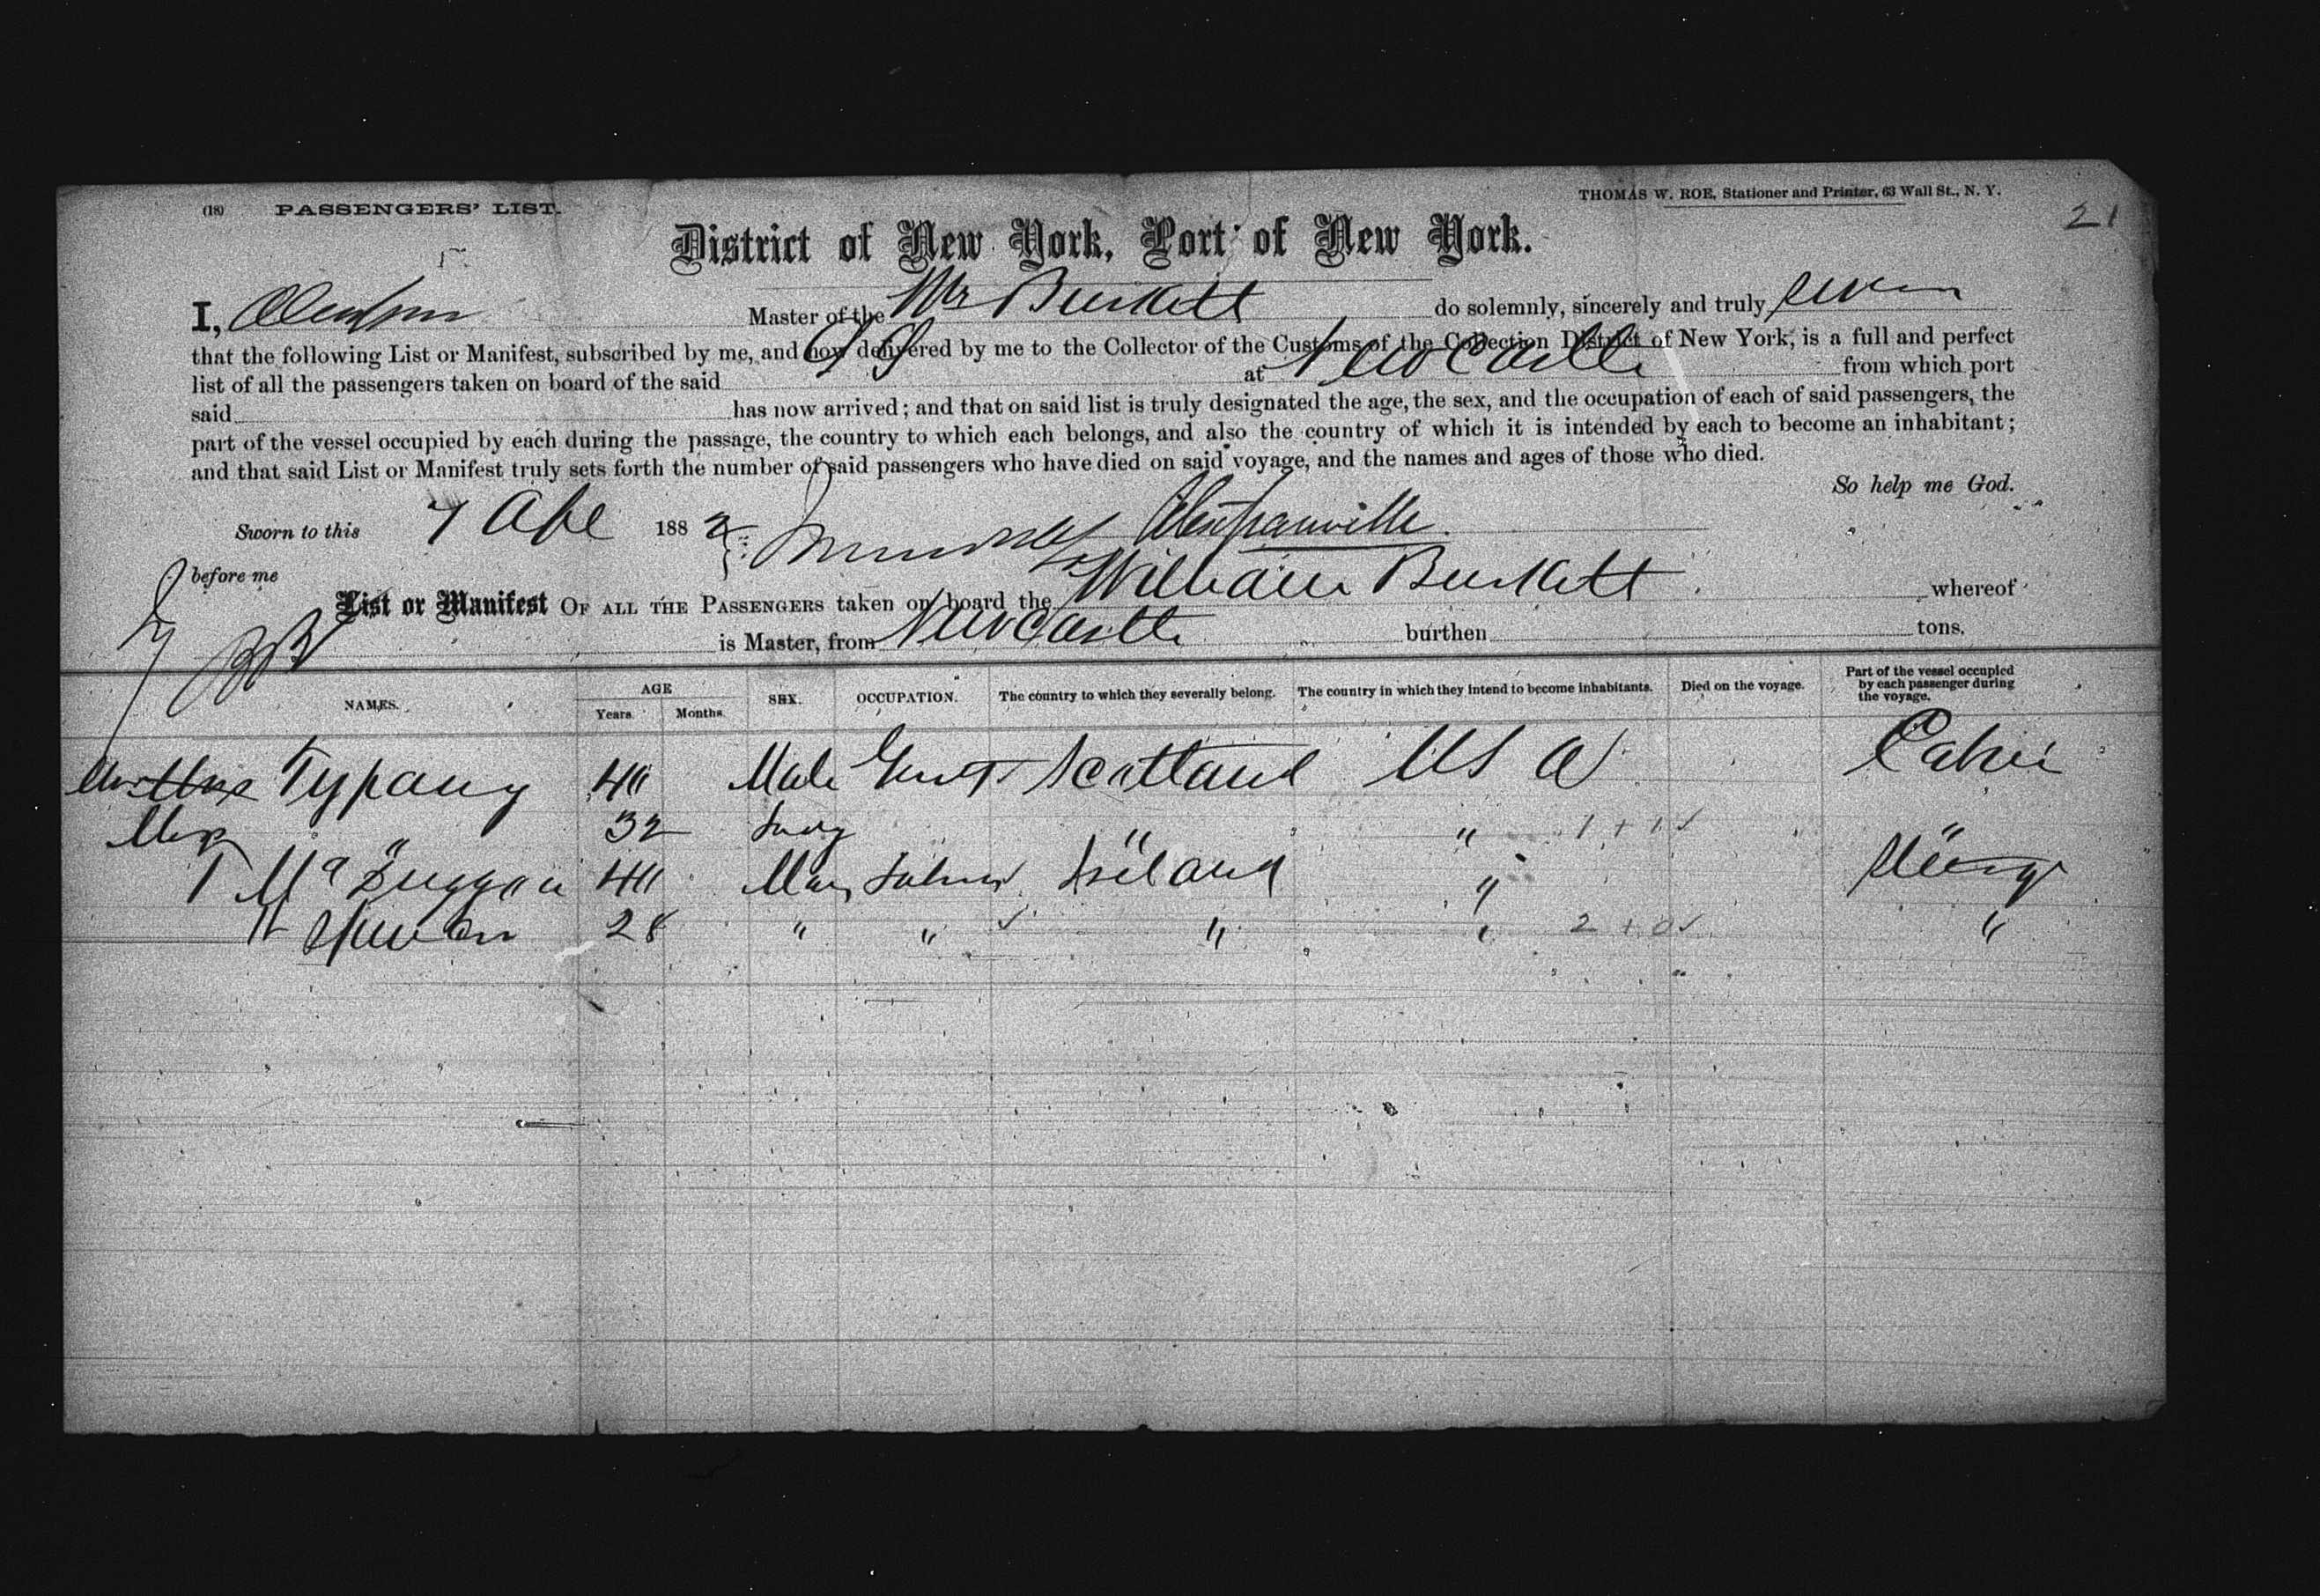 (18) PASSENGERS' LIST. THOMAS W. ROE, Stationer and Printer, 63 Wall St., N. Y.
21
District of New York, Port of New York.
I, Master of the Wm Burkitt do solemnly, sincerely and truly swear
that the following List or Manifest, subscribed by me, and now delivered by me to the Collector of the Customs of the Collection District of New York, is a full and perfect
list of all the passengers taken on board of the said at Newcastle from which port
said has now arrived; and that on said list is truly designated the age, the sex, and the occupation of each of said passengers, the
part of the vessel occupied by each during the passage, the country to which each belongs, and also the country of which it is intended by each to become an inhabitant;
and that said List or Manifest truly sets forth the number of said passengers who have died on said voyage, and the names and ages of those who died.
So help me God.
Sworn to this 7 Ape 188
before me
List or Manifest OF ALL THE PASSENGERS taken on board the William Burkitt whereof
is Master, from Newcastle burthen tons.
NAMES. AGE Years. Months. SEX. OCCUPATION. The country to which they severally belong. The country in which they intend to become inhabitants. Died on the voyage. Part of the vessel occupied by each passenger during the voyage.
Typany 40 Male Gent Scotland U S A Cabin
" 32 Lady " " 1 + 1 ✓ "
T Mc Duggan 40 Man Ireland "
28 " " ✓ " " 2 + 0 ✓ "